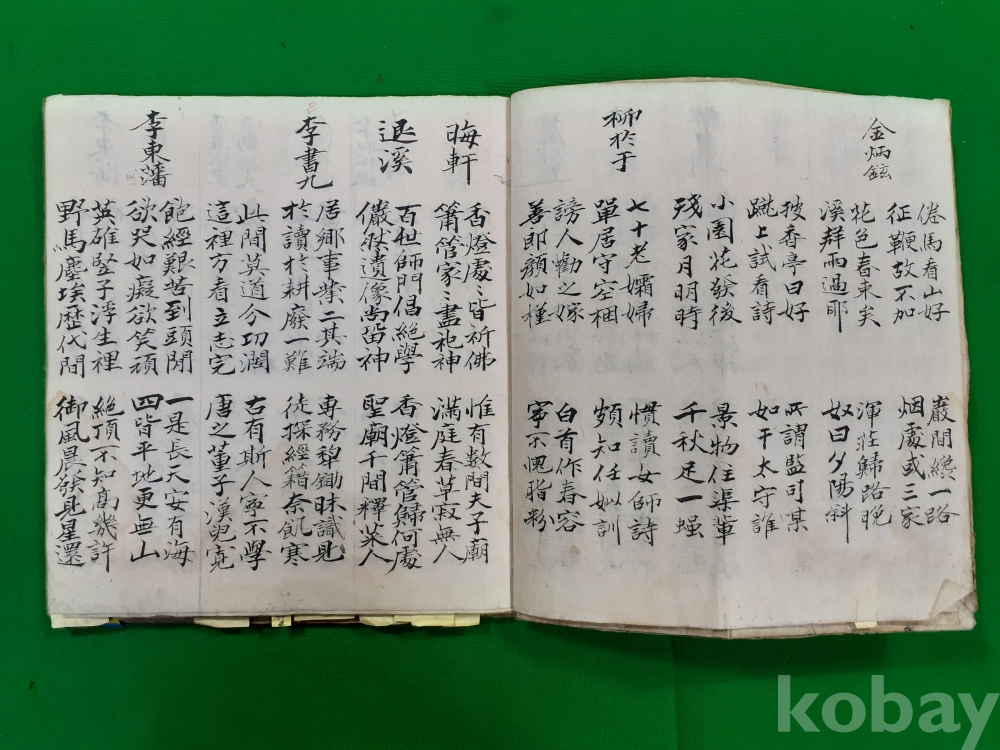 金炳鉉
倦馬看山好 巖間纔一路
征鞭故不加 烟處或三家
花色春來矣 渾莊歸路晚
溪聲雨過耶 奴曰夕陽斜
披香亭曰好 所謂監可某
蹴上試看詩 如干太守誰
小園花發後 景物任渠軰
殘家月明時 千秋足一
柳於于
七十老孀婦 慣讀女師詩
單居守空梱 頗知任姒訓
謗人勸之嫁 白首作春容
善郞顔如槿 寧不愧脂粉
晦軒
香燈處〻皆祈佛 惟有數間夫子廟
簫管家〻盡祀神 滿庭春草寂無人
退溪
百世師門倡絶學 香燈簫管歸何處
儼然遺像尚留神 聖廟千間釋菜人
李書九
居鄕事業二其端 專務犁鋤昧識見
於讀於耕廢一難 徒探經籍奈飢寒
此間莫道今切濶 古有斯人寧不學
這裡方看立志完 唐之董子漢兒寬
李東藩
飽經艱苦到頭閒 一是長天安有海
欲哭如癡欲笑頑 四皆平地更無山
英雄竪子浮生裡 絶頂不知高幾許
野馬塵埃歷代間 御風晨發見星還
kobay